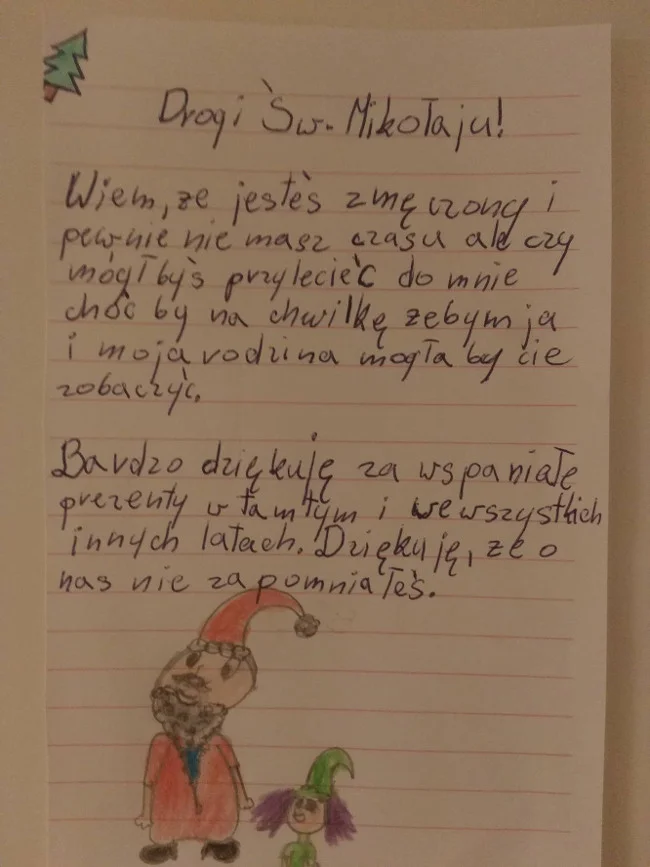 Drogi Św. Mikołaju!
Wiem, ze jesteś zmęczony i
pewnie nie masz czasu ale czy
mógł byś przylecieć do mnie
choć by na chwilkę zebym ja
i moja rodzina mogła by cie
zobaczyć.
Bardzo dziękuję za wspaniałe
prezenty w tamtym i we wszystkich
innych latach. Dziękuję, ze o
nas nie zapomniałeś.